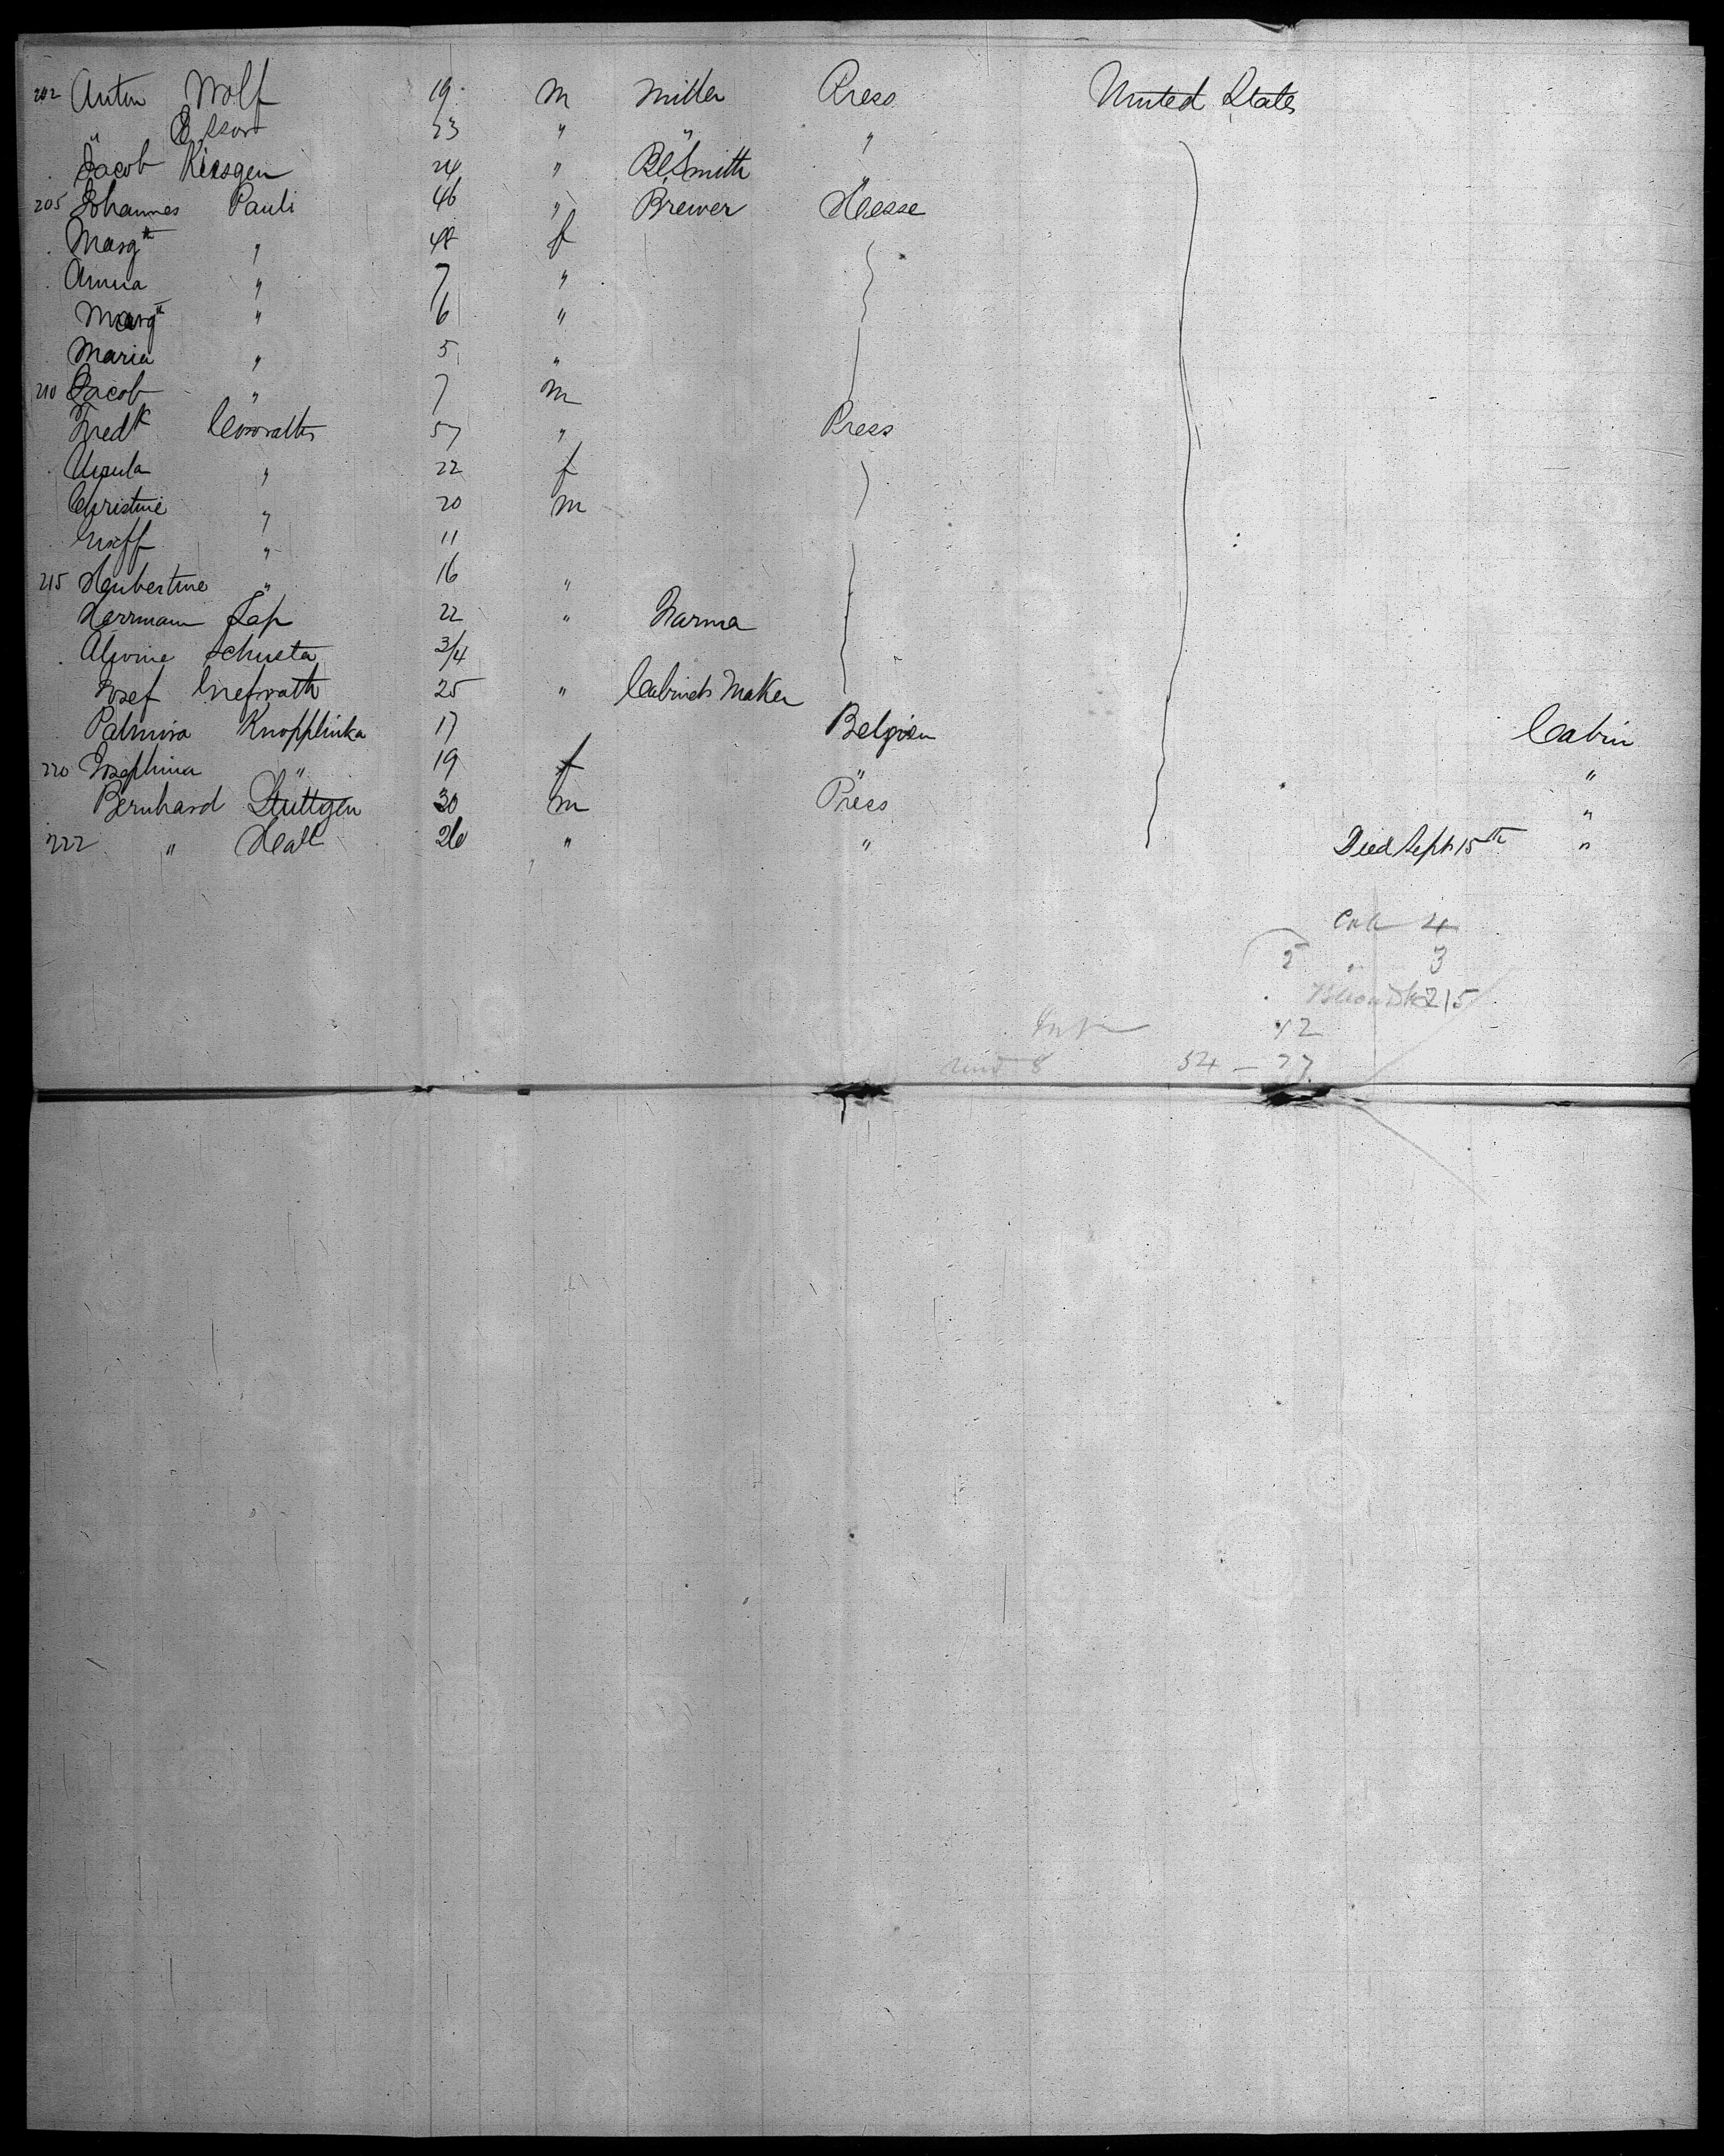 202 Anton Wolf 19 m Miller Press United States
" 23 " " "
Jacob Kirsgen 24 " Bl Smith "
205 Johannes Pauli 46 " Brewer Hesse
Margt " f
Anna " 7 "
Margt " 6 "
Maria " 5 "
210 Jacob " 7 m
Fredk 57 " Press
Ursula " 22 f
Christine " 20 m
" 11
215 Hubertine " 16 "
Herrmann 22 " Farmer
Alwine Schuster 3/4
Josef 25 " Cabinet Maker
Palmira Knopplinka 17 Belgien Cabin
220 Josephina " 19 f " "
Bernhard Stuttgen 30 m Press "
222 " 26 " " Died Sept 15th "
Cab 4
2 " 3
215
42
54 - 77